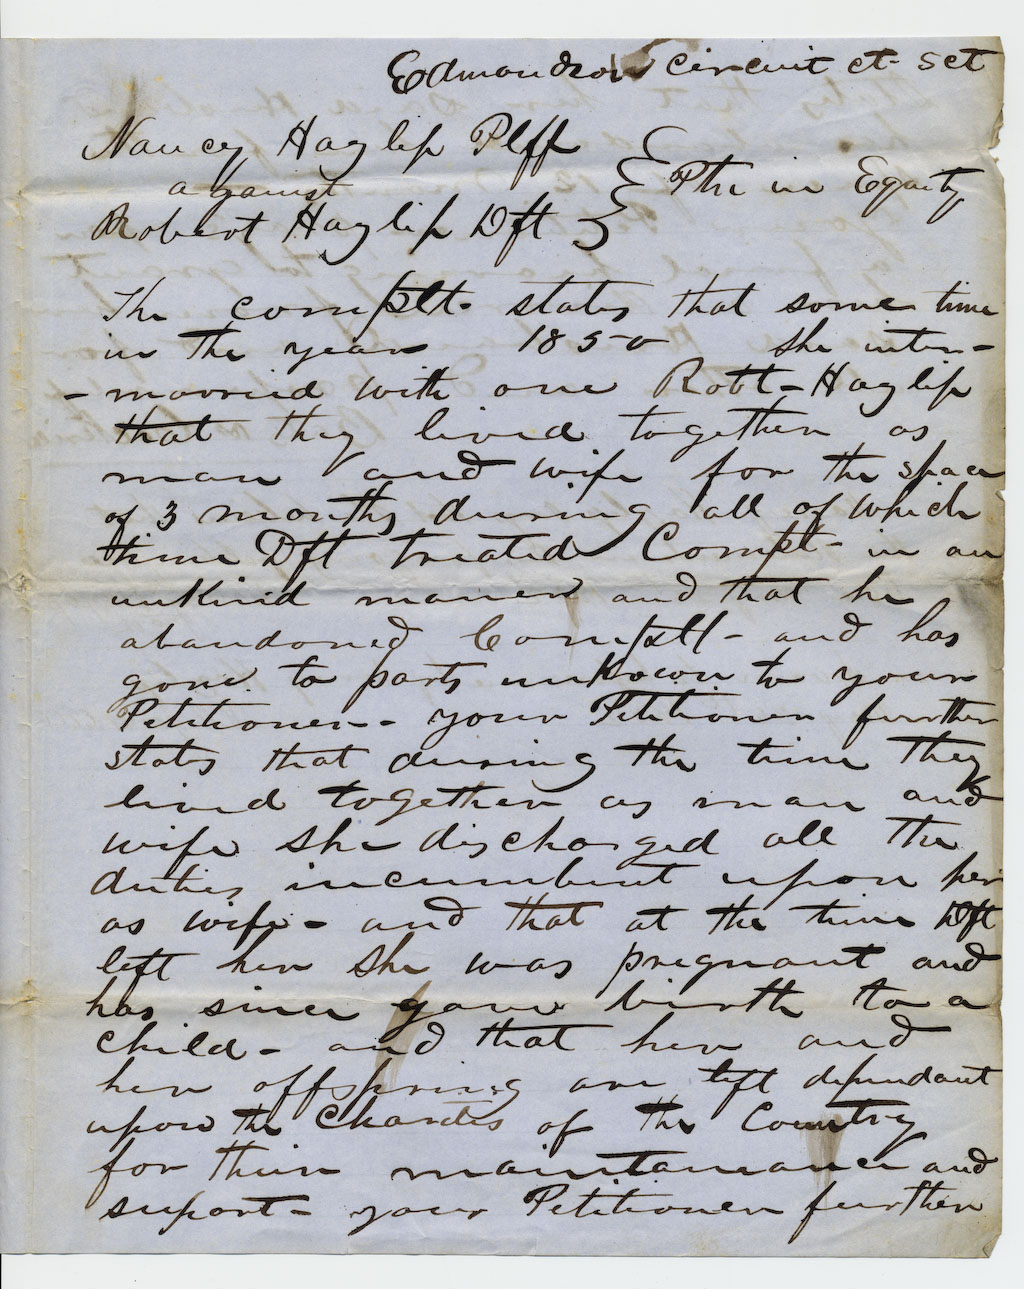 Edmondson Circuit ct- Sct
Nancy Haglip Plff
against
Ptn in Equity
Robert Haglip Dft
The complt- states that some time
in the year 1850 she inter-
- married with one Robt- Haglip
that they lived together as
man and wife for the space
of 3 months during all of which
time Dft treated Complt- in an
unkind maner and that he
abandoned Complt- and has
gone to parts unknown to your
Petitioner- your Petitioner further
states that during the time they
lived together as man and
wife she discharged all the
duties incumbent upon her
as wife- and that at the time Dft
left her she was pregnant and
has since gave birth to a
child- and that her and
her offspring are left dependant
upon the Charites of the Country
for their maintanance and
suport- your Petitioner further